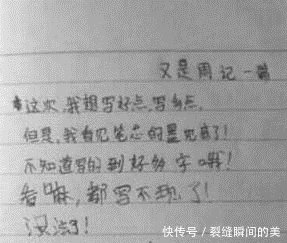 又是周记一篇
这次,我想写好点,写多点,
但是,我看见笔芯的墨见底了!
不知道写的到好多字哦!
看嘛,都写不现了!
没法了!
快传号／裂缝瞬间的美